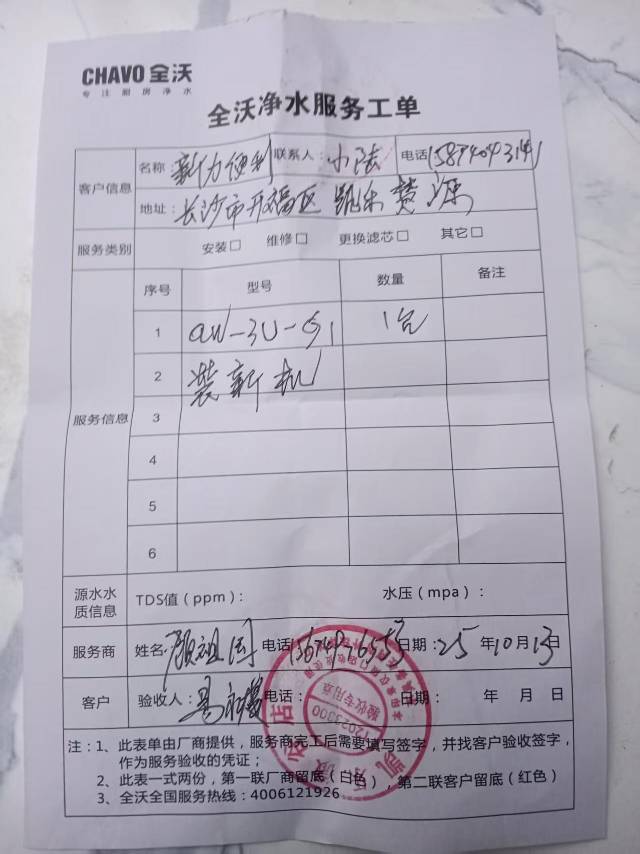 CHAVO 全沃
专注厨房净水
全沃净水服务工单
客户信息 名称 新力便利 联系人：小陆 电话
地址：长沙市开福区 凯乐 源
服务类别 安装□ 维修□ 更换滤芯□ 其它□
服务信息 序号 型号 数量 备注
1 aw-3U-G1 1台
2 装新机
3
4
5
6
源水水质信息 TDS值（ppm）： 水压（mpa）：
服务商 姓名： 颜祖国 电话 日期：25 年 10 月 13 日
客户 验收人： 电话： 日期： 年 月 日
注：1、此表单由厂商提供，服务商完工后需要填写签字，并找客户验收签字，
作为服务验收的凭证；
2、此表一式两份，第一联厂商留底（白色），第二联客户留底（红色）
3、全沃全国服务热线：4006121926
验收专用章